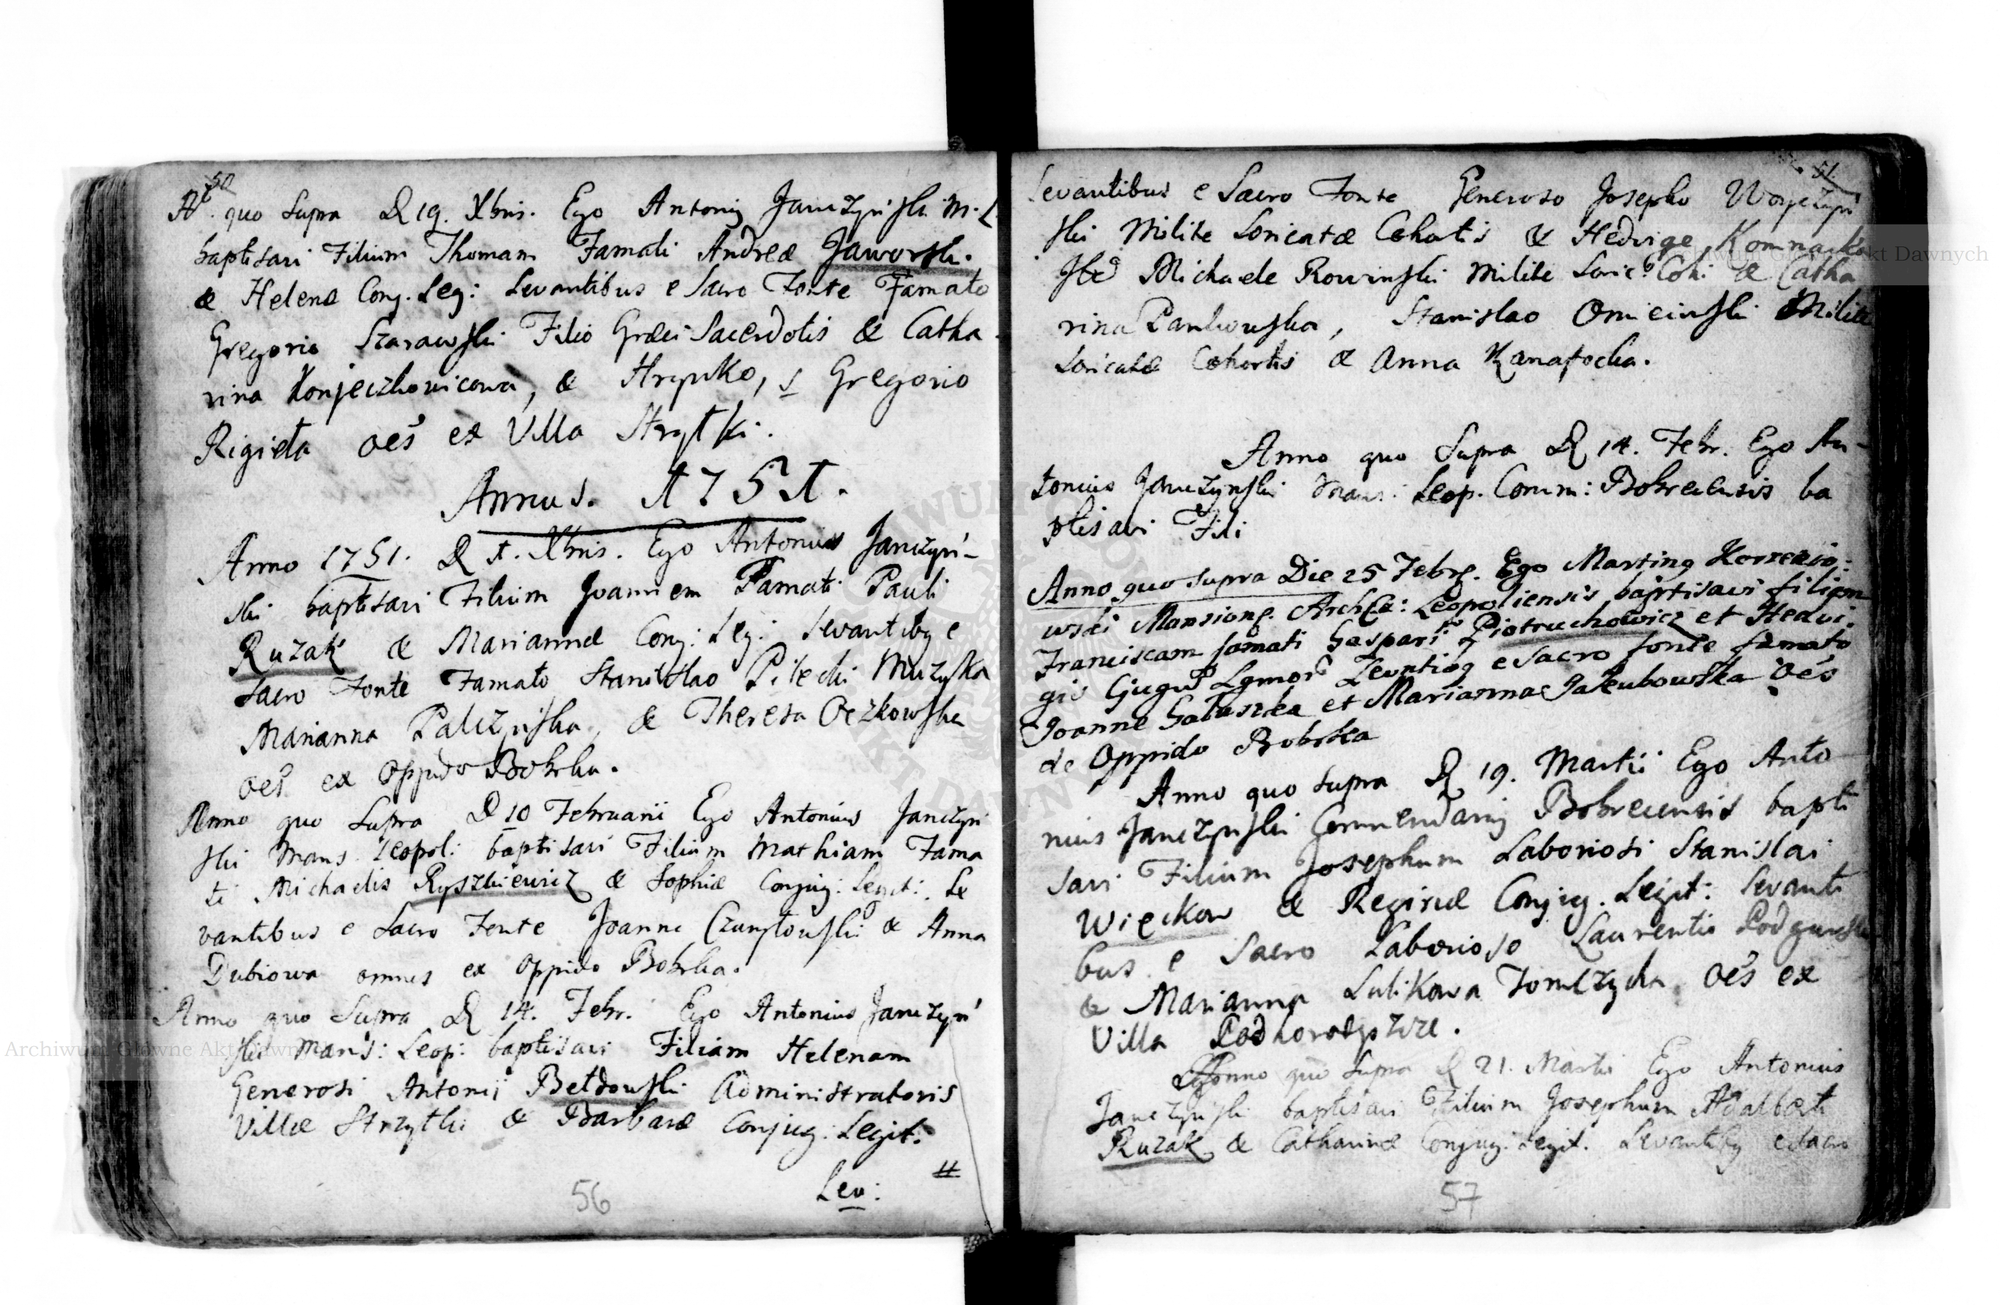 50
Aō. quo Supra D 19. Xbris. Ego Antoni9 Janczyński M. L.
baptisavi Filium Thomam Famati Andreæ Jaworski.
& Helenæ Conj. Leg: Levantibus e Sacro Fonte Famato
Gregorio Szarawski Filio Græci Sacerdotis & Catha
rina Konjeczkowicowa, & Hrynko, s Gregorio
Rigieta oēs ex Villa Strytki.
Annus. 1751.
Anno 1751. D 1. Xbris. Ego Antonius Janczyń-
ski baptisavi Filium Joannem Famati Pauli
Ruzak & Mariannæ Conj: Leg: Levantiby e
Sacro Fonte Famato Stanislao Pilecki Muzyka
Marianna Palczyńska, & Theresa Oczkowska
oēs ex Oppido Bobrka.
Anno quo Supra D 10 Februarii Ego Antonius Janczyń
ski Mans. Leopol: baptisavi Filium Mathiam Fama
ti Michaelis Ryszkiewicz & Sophiæ Conjug: Legit: Le
vantibus e Sacro Fonte Joanne & Anna
Dubiowa omnes ex Oppido Bobrka.
Anno quo Supra D 14. Febr. Ego Antonius Janczyń
ski Mans: Leop: baptisavi Filiam Helenam
Generosi Antonij Bełdowski Administratoris
Villæ Strzytki & Barbaræ Conjug: Legit:
Lev:
56
51.
Levantibus e Sacro Fonte Generoso Josepho Woyczyń
ski Milite Loricatæ Cohortis & Hedvige
Michaele Rowinski Milite Loric: Coh: & Catha
rina Pankowska, Stanislao Omiecinski Milite
Loricatæ Cohortis & Anna Kanafocka.
Anno quo Supra D 14. Febr. Ego An-
tonius Janczyński Mans: Leop. Comm: Bobrecensis ba
ptisavi Fili
Anno quo supra Die 25 Febr. Ego Martin9 Korzenio:
wski Mansion9 ArchCa: Leopoliensis baptisavi filiam
Franciscam famati Gaspari Piotruchowicz et Hedvi:
gis Levntib9 e Sacro fonte famato
Joanne Gałuszka et Marianna Jakubowska oēs
de Oppido Bobrka
Anno quo supra D 19. Martii Ego Anto
nius Janczyński Commendari9 Bobrecensis bapti
savi Filium Josephum Laboriosi Stanislai
Więckow & Reginæ Conjug. Legit: Levanti
bus e Sacro Laborioso Laurentio Podgurski
& Marianna Lulikowa Tomczycha oēs ex
Villa Podhorodyszcze.
Anno quo Supra D 21. Martii Ego Antonius
Janczyński baptisavi Filium Josephum Adalberti
Ruzak & Catharinæ Conjug: Legit. Levantiby e Sacro
57
Archiwum Główne Akt Dawnych
Archiwum Główne Akt Dawnych